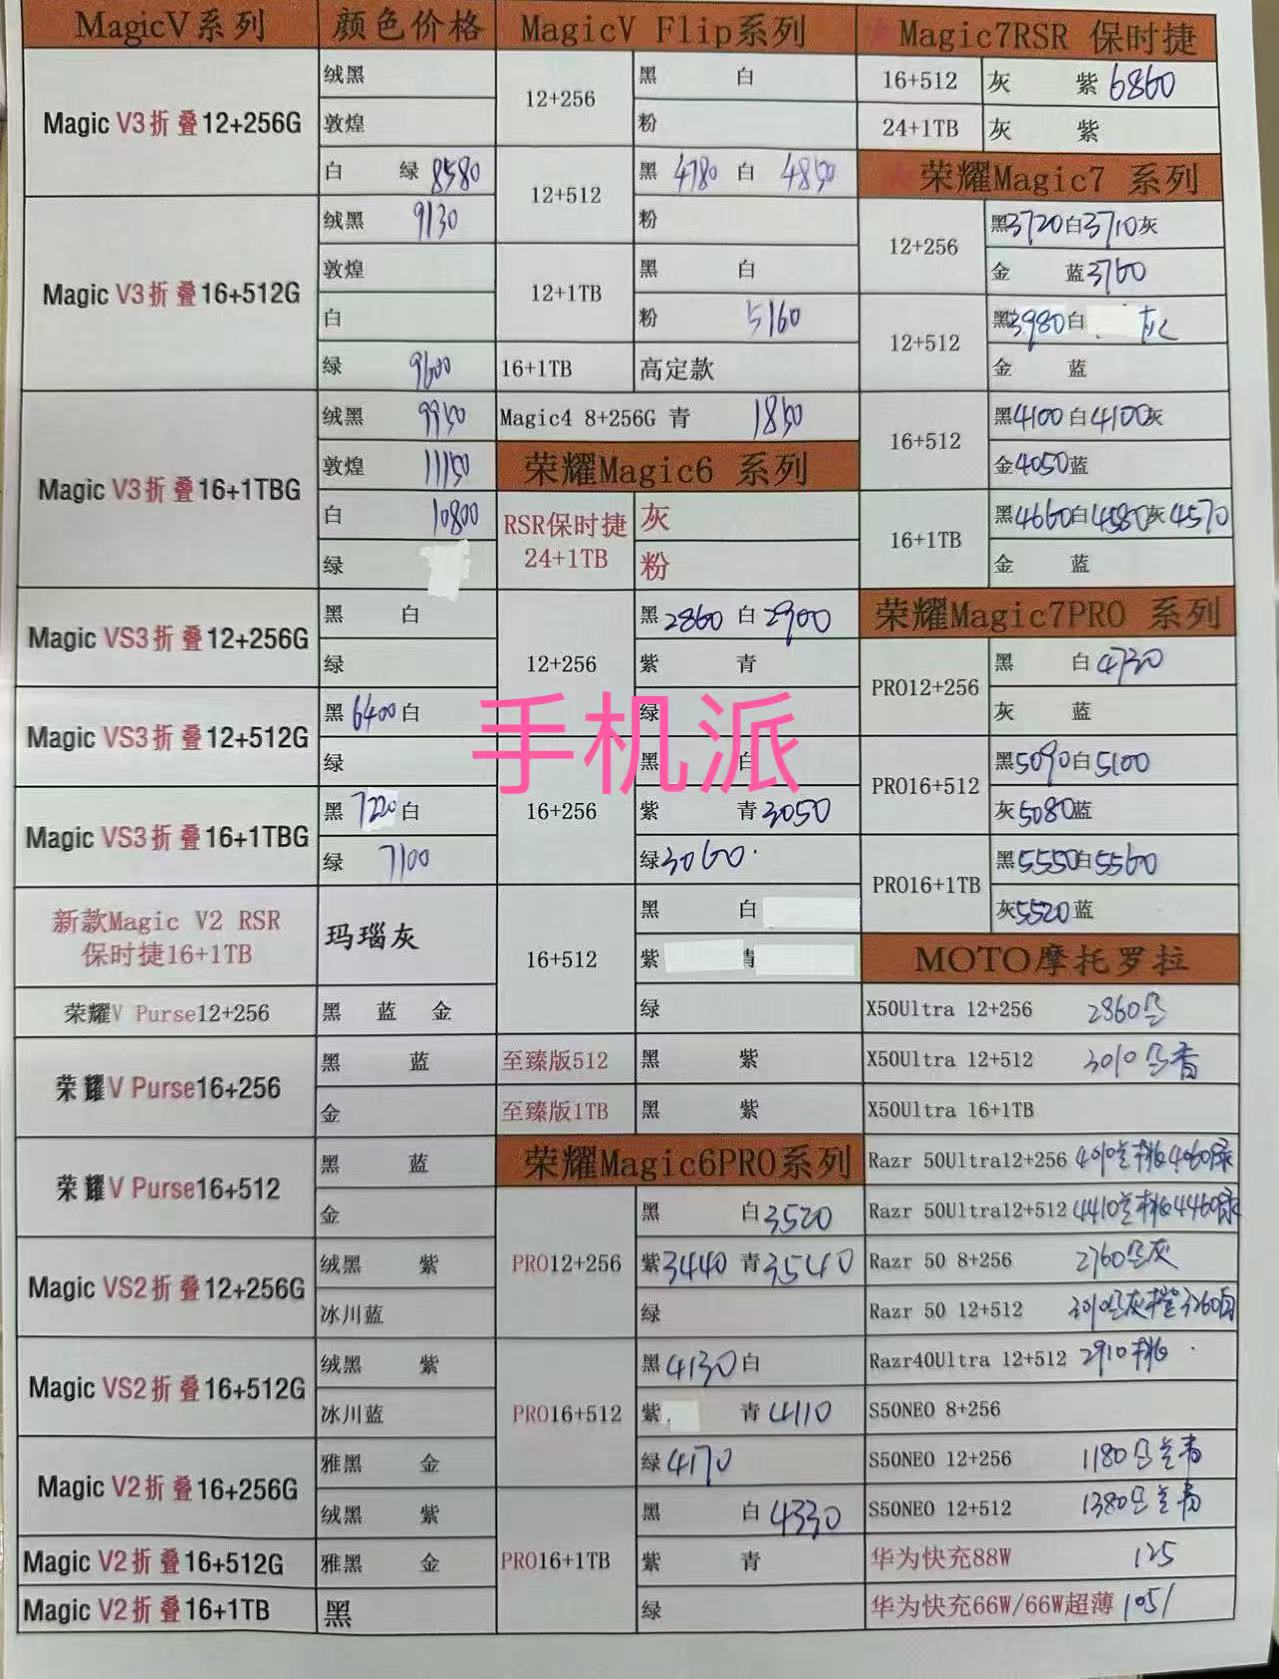 MagicV系列 颜色价格
Magic V3折叠12+256G
绒黑
敦煌
白 绿 8580
Magic V3折叠16+512G
绒黑 9130
敦煌
白
绿 9600
Magic V3折叠16+1TBG
绒黑 9950
敦煌 11150
白 10800
绿
Magic VS3折叠12+256G
黑 白
绿
Magic VS3折叠12+512G
黑 6400 白
绿
Magic VS3折叠16+1TBG
黑 7220 白
绿 7100
新款Magic V2 RSR
保时捷16+1TB
玛瑙灰
荣耀V Purse12+256
黑 蓝 金
荣耀V Purse16+256
黑 蓝
金
荣耀V Purse16+512
黑 蓝
金
Magic VS2折叠12+256G
绒黑 紫
冰川蓝
Magic VS2折叠16+512G
绒黑 紫
冰川蓝
Magic V2折叠16+256G
雅黑 金
绒黑 紫
Magic V2折叠16+512G
雅黑 金
Magic V2折叠16+1TB
黑
MagicV Flip系列
12+256
黑 白
粉
12+512
黑 4780 白 4850
粉
12+1TB
黑 白
粉 5160
16+1TB 高定款
Magic4 8+256G 青 1850
荣耀Magic6 系列
RSR保时捷
24+1TB
灰
粉
12+256
黑 2860 白 2900
紫 青
绿
16+256
黑 白
紫 青 3050
绿 3060
16+512
黑 白
紫 青
绿
至臻版512 黑 紫
至臻版1TB 黑 紫
荣耀Magic6PRO系列
PRO12+256
黑 白 3520
紫 3440 青 3540
绿
PRO16+512
黑 4130 白
紫 青 4110
绿 4170
PRO16+1TB
黑 白 4330
紫 青
绿
Magic7RSR 保时捷
16+512 灰 紫 6860
24+1TB 灰 紫
荣耀Magic7 系列
12+256
黑 3720 白 3710 灰
金 蓝 3760
12+512
黑 3980 白 灰
金 蓝
16+512
黑 4100 白 4100 灰
金 4050 蓝
16+1TB
黑 4660 白 4580 灰 4570
金 蓝
荣耀Magic7PRO 系列
PRO12+256
黑 白 4730
灰 蓝
PRO16+512
黑 5090 白 5100
灰 5080 蓝
PRO16+1TB
黑 5550 白 5560
灰 5520 蓝
MOTO摩托罗拉
X50Ultra 12+256 2860
X50Ultra 12+512 3010
X50Ultra 16+1TB
Razr 50Ultra12+256 4010 4060绿
Razr 50Ultra12+512 4410 4460绿
Razr 50 8+256 2760 灰
Razr 50 12+512 灰
Razr40Ultra 12+512 2910 桃
S50NEO 8+256
S50NEO 12+256 1180
S50NEO 12+512 1380
华为快充88W 125
华为快充66W/66W超薄 105/
手机派